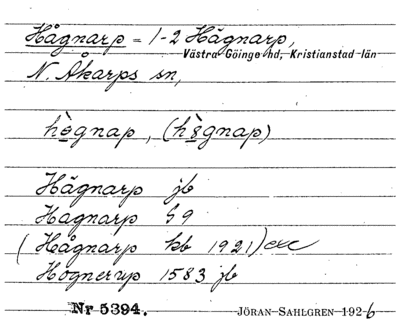 Hågnarp = 1-2 Hågnarp,
Västra Göinge hd, Kristianstad län
N. Åkarps sn,
hògnap, (hògnap)
Hågnarp jb
Hagnarp G9
(Hågnarp kb 1921) etc
Hognerup 1583 jb
Nr 5394. JÖRAN SAHLGREN 1926